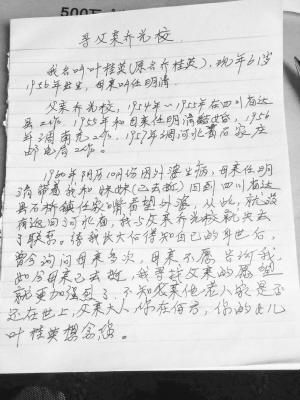 500
寻父亲乔光校
我名叫叶桂英(原名乔桂英),现年61岁
1956年出生,母亲叫任明清。
父亲乔光校,1954年~1955年在四川省达
县工作。1955年和母亲任明清结婚,1956
年调南充工作。1957年调河北省石家庄
邮电局工作。
1960年 月10 因外婆生病,母亲任明
清带着我和妹妹(已去世)回到四川省达
县石桥镇任家 看望外婆,从此,就没
有返回河北省,我与父亲乔光校就失去
了联系。待我长大后得知自己的身世后,
曾今询问母亲多次,母亲不愿告诉我,
如今母亲已去逝,我寻找父亲的愿望
就更加强烈了,不知父亲他老人家是否
还在世上,父亲大人你在何方,你的女儿
叶桂英想念您。